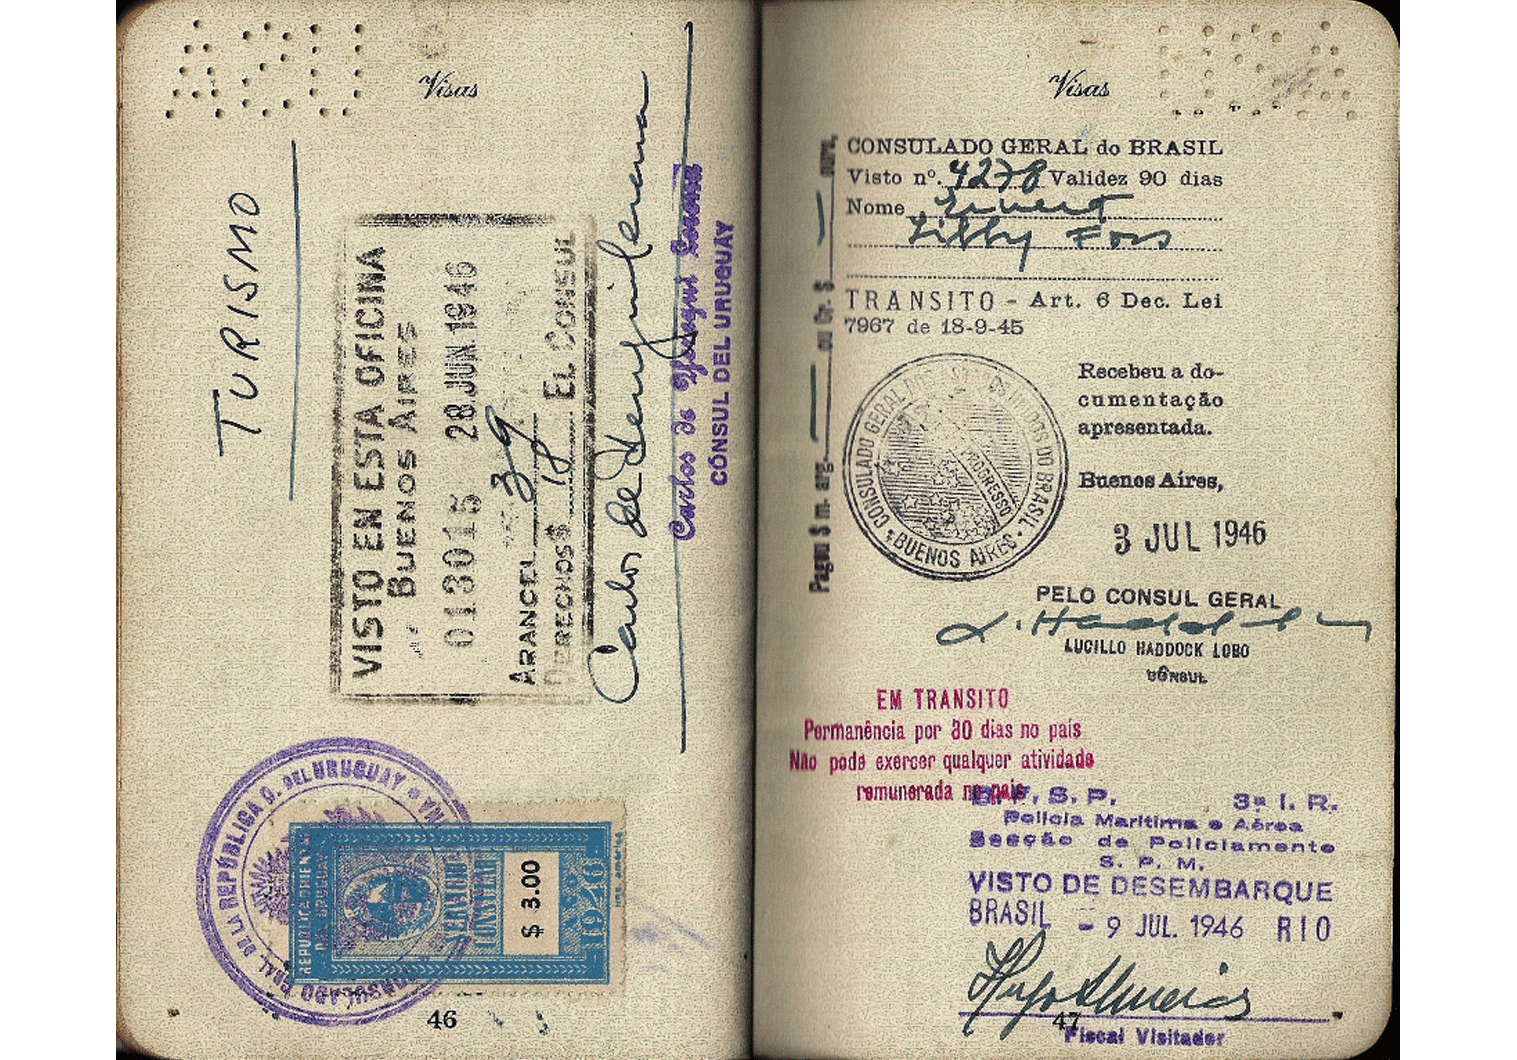 Visas
TURISMO
VISTO EN ESTA OFICINA
BUENOS AIRES
013015 28 JUN 1946
ARANCEL 39
DERECHOS $ 18 EL CONSUL
Carlos de
Carlos de
CÓNSUL DEL URUGUAY
CONSULADO GRAL. DE LA REPÚBLICA O. DEL URUGUAY
REPUBLICA ORIENTAL
DEL URUGUAY
SERVICIO
CONSULAR
$ 3.00
1946
46
Visas
CONSULADO GERAL do BRASIL
Visto nº. 4278 Validez 90 dias
Nome
Libby Foss
TRANSITO - Art. 6 Dec. Lei
7967 de 18-9-45
Pagou $ m. arg. ou Cr. $ ouro.
CONSULADO GERAL DOS ESTADOS UNIDOS DO BRASIL
PROGRESSO
BUENOS AIRES
Recebeu a do-
cumentação
apresentada.
Buenos Aires,
3 JUL 1946
PELO CONSUL GERAL
LUCILLO HADDOCK LOBO
CÔNSUL
EM TRANSITO
Permanência por 30 dias no país
Não pode exercer qualquer atividade
remunerada no país
S. P. 3ª I. R.
Policia Maritima e Aérea
Secção de Policiamento
S. P. M.
VISTO DE DESEMBARQUE
BRASIL - 9 JUL. 1946 RIO
Hugo Almeida
47
Fiscal Visitador